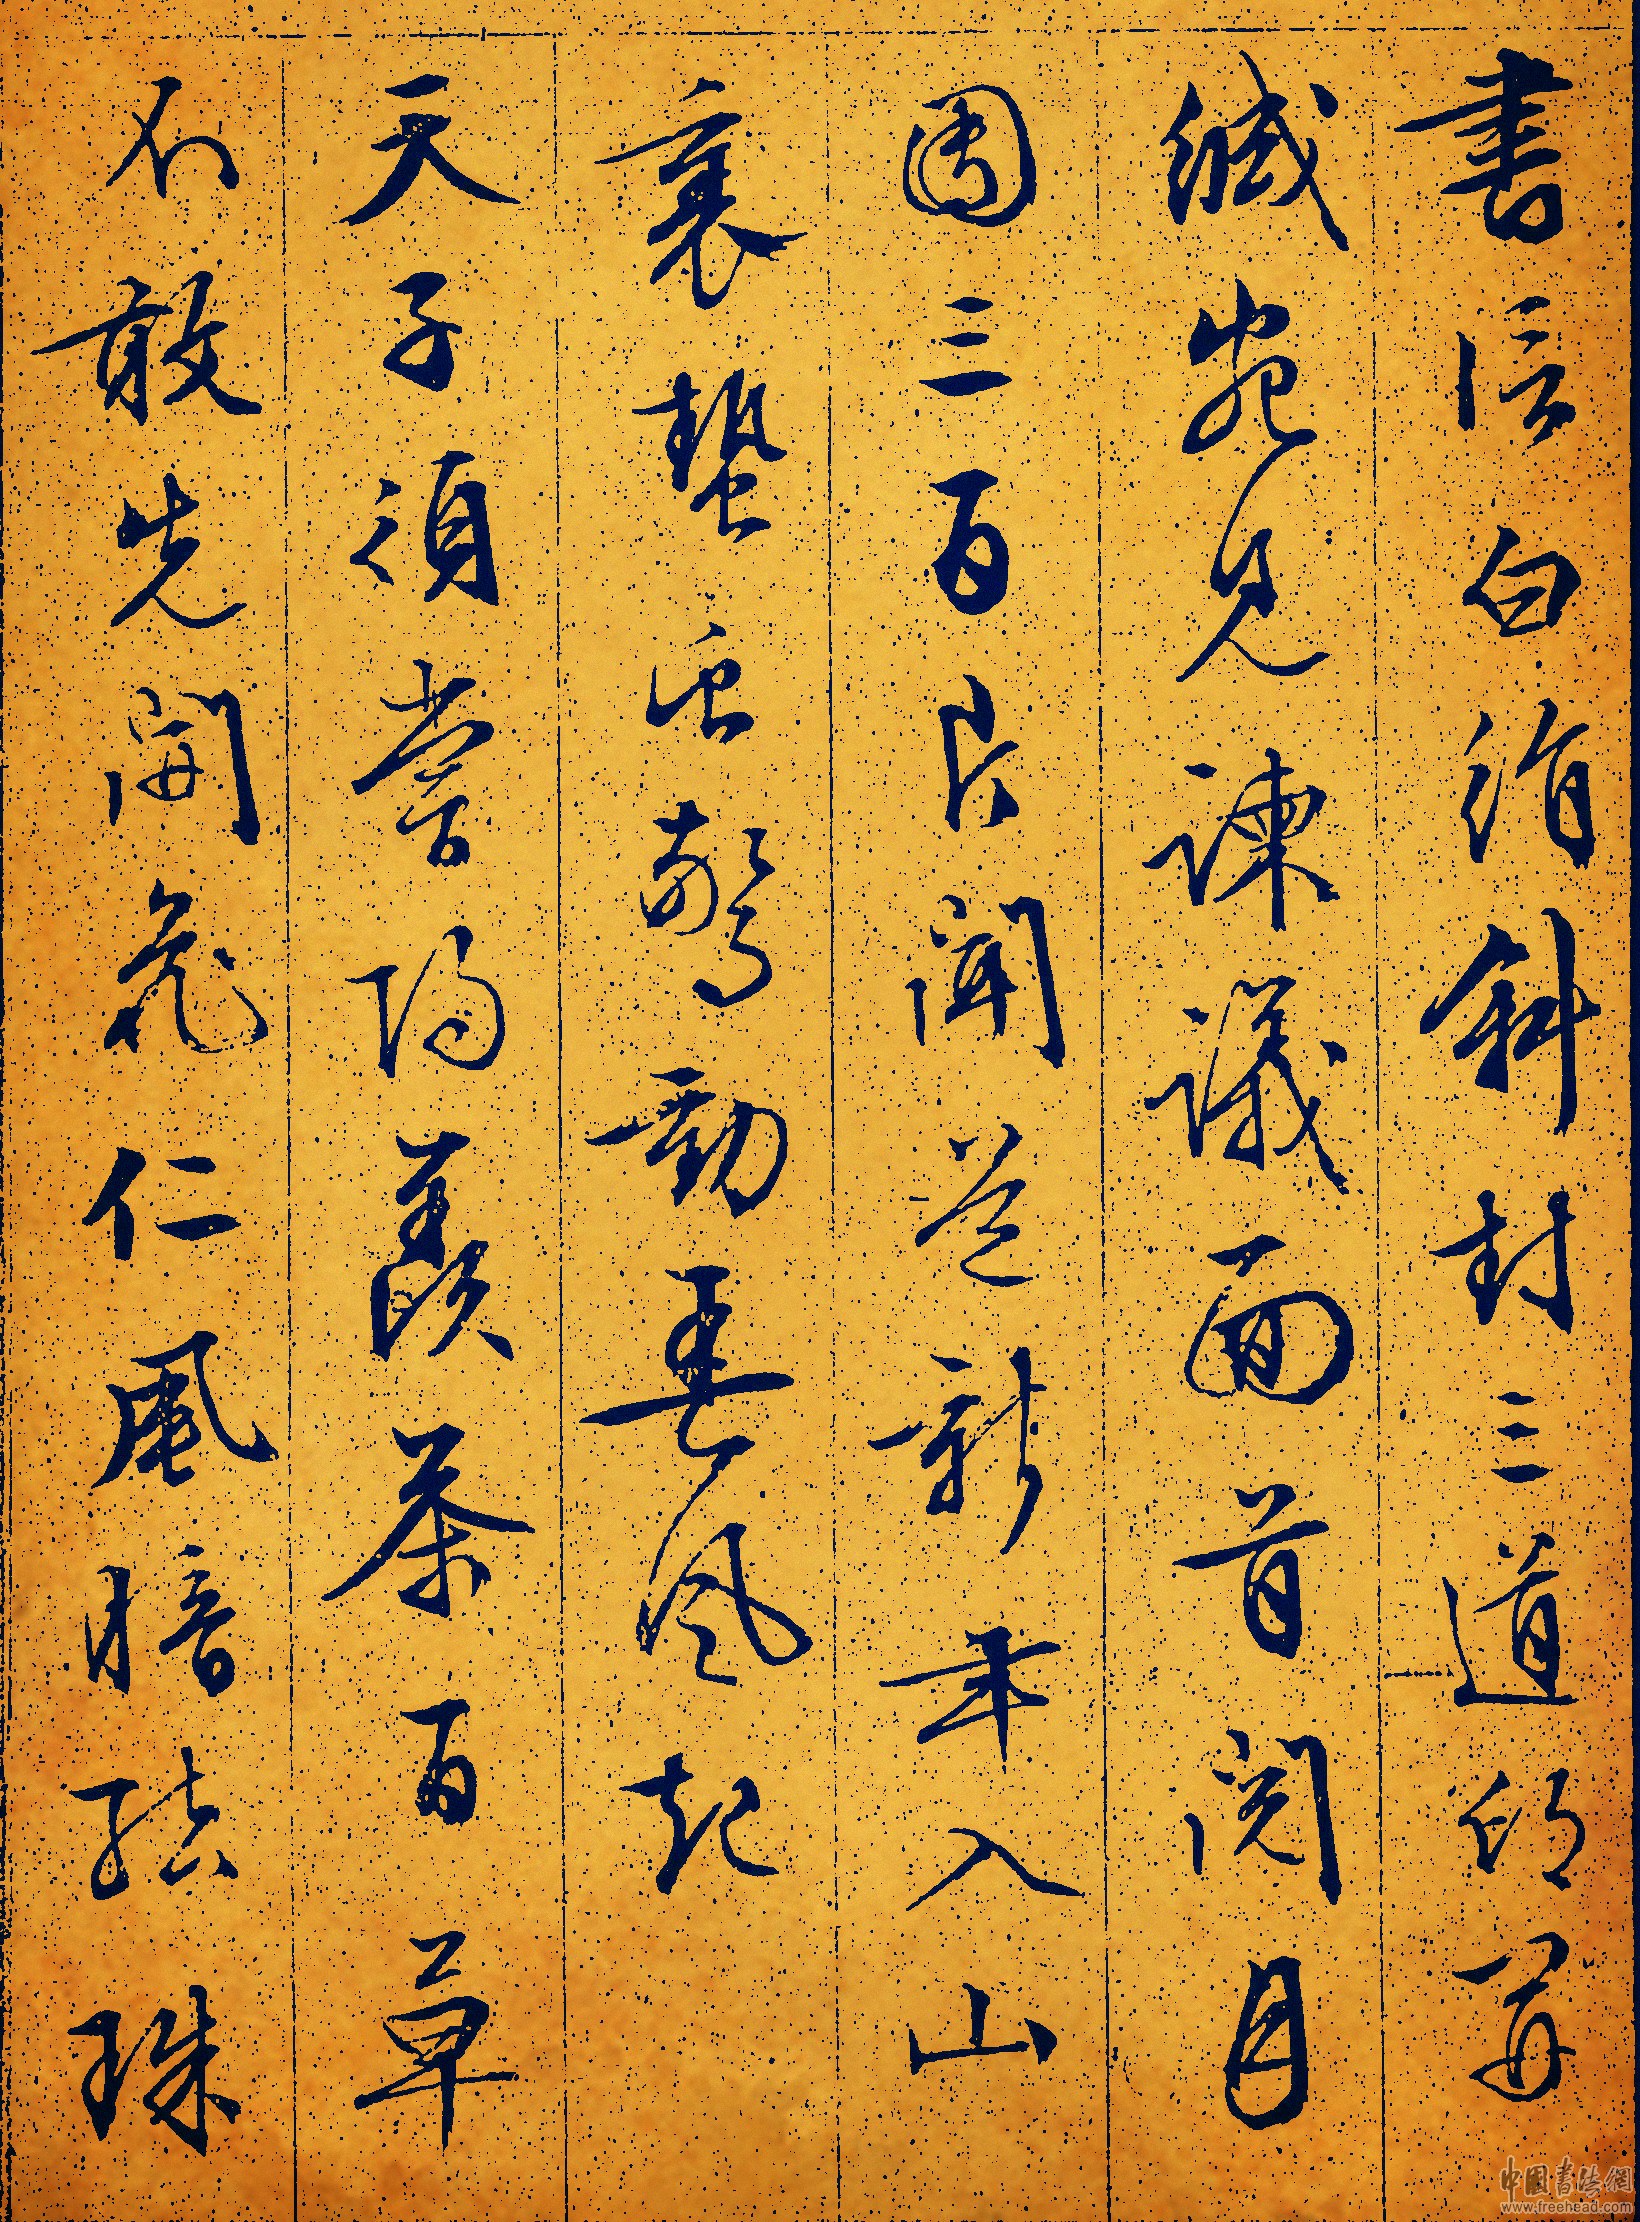 書信白絹斜封三道印開
緘宛見諫議面首閱月
團三百片聞道新年入山
裏蟄蟲驚動春風起
天子須嘗陽羨茶百草
不敢先開花仁風暗結
珠
中國書法網
www.freehead.com